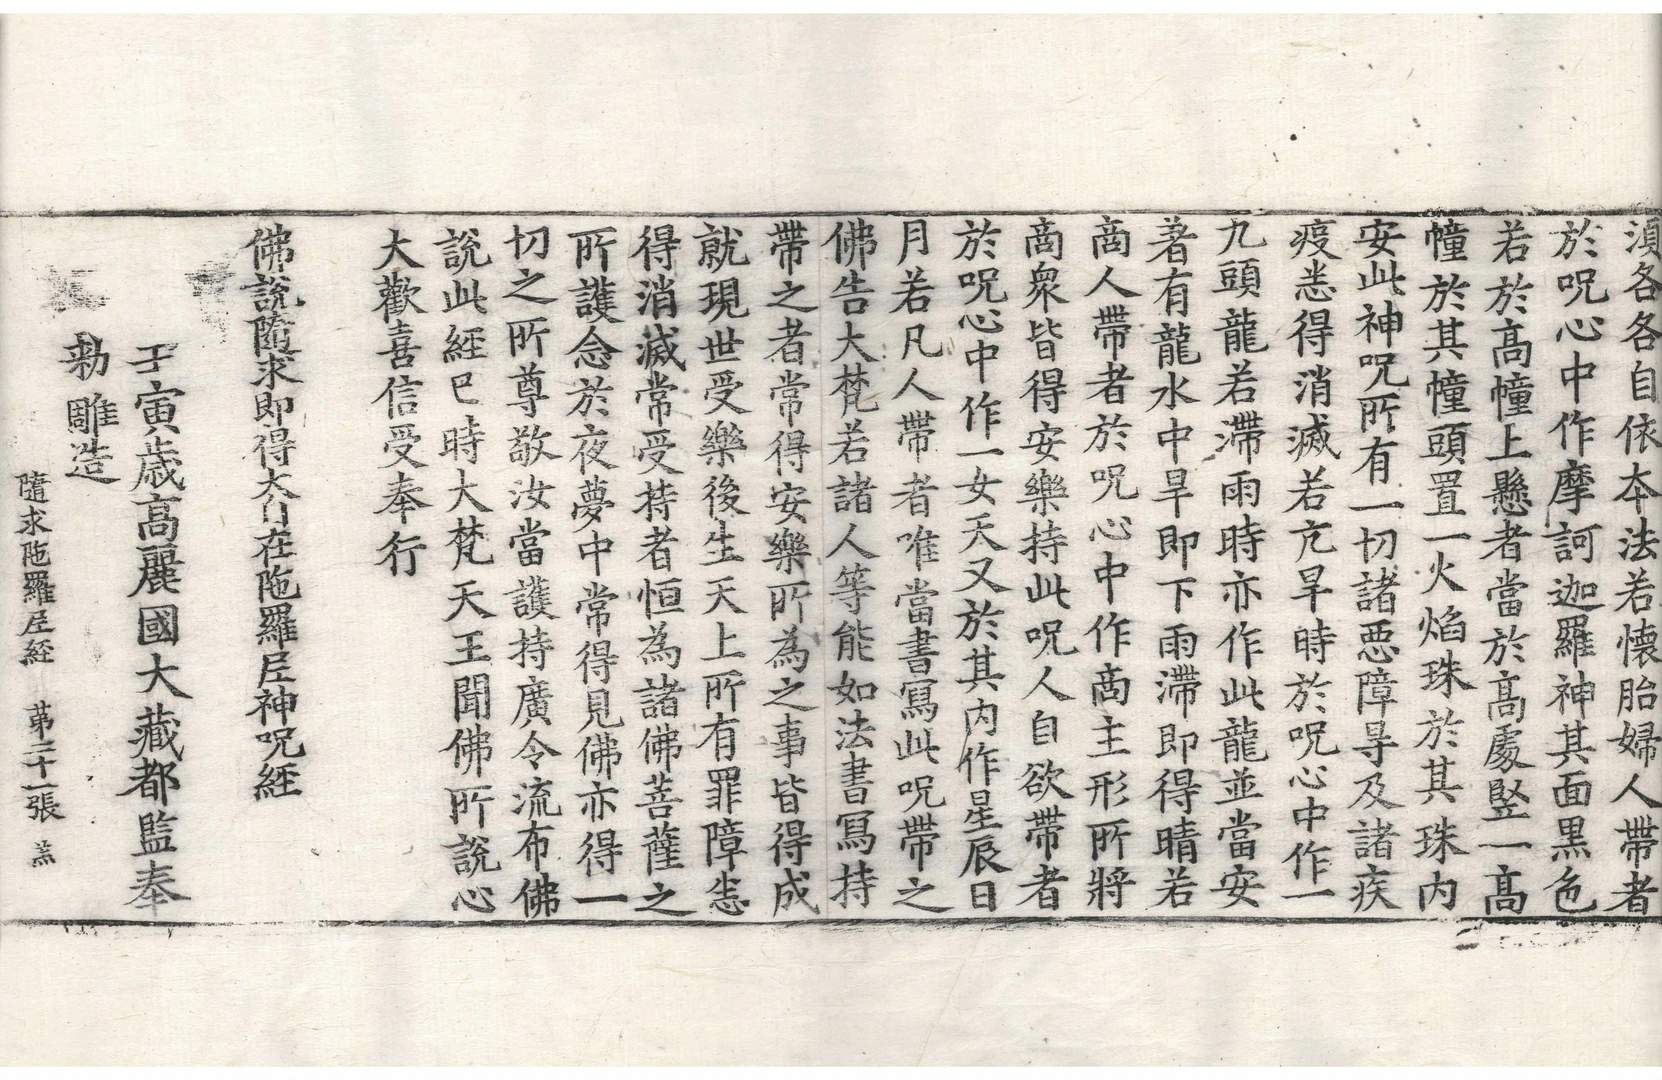 湏各各自依本法若懐胎婦人帶者
於呪心中作摩訶迦羅神其面黒色
若於髙幢上懸者當於髙處竪一髙
幢於其幢頭置一火焰珠於其珠内
安此神呪所有一切諸惡障㝵及諸疾
疫悉得消滅若亢旱時於呪心中作一
九頭龍若滯雨時亦作此龍並當安
著有龍水中旱即下雨滯即得晴若
啇人帶者於呪心中作啇主形所將
啇衆皆得安樂持此呪人自欲帶者
於呪心中作一女天又於其内作星辰日
月若凡人帶者唯當書寫此呪帶之
佛告大梵若諸人等能如法書寫持
帶之者常得安樂所為之事皆得成
就現世受樂後生天上所有罪障悉
得消滅常受持者恒為諸佛菩薩之
所護念於夜夢中常得見佛亦得一
切之所尊敬汝當護持廣令流布佛
說此經已時大梵天王聞佛所說心
大歡喜信受奉行
佛說隨求即得大自在陁羅尼神呪經
壬寅歳髙麗國大藏都監奉
勑雕造
隨求陁羅尼經 苐二十一張 羔